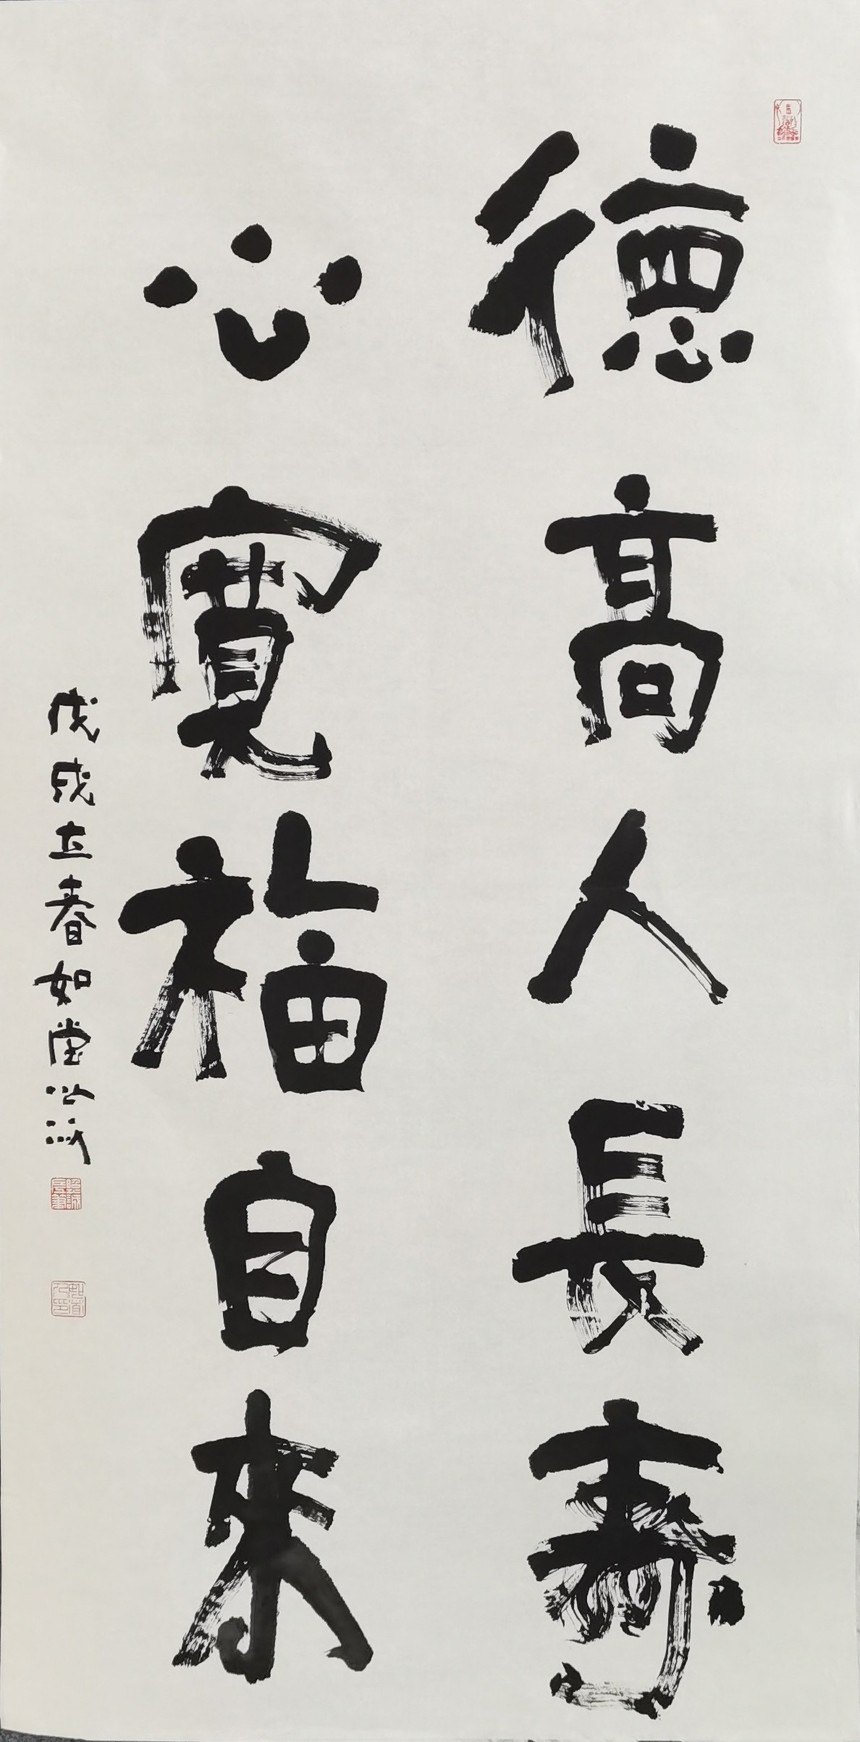 德高人長壽
心寬福自來
戊戌立春如堂